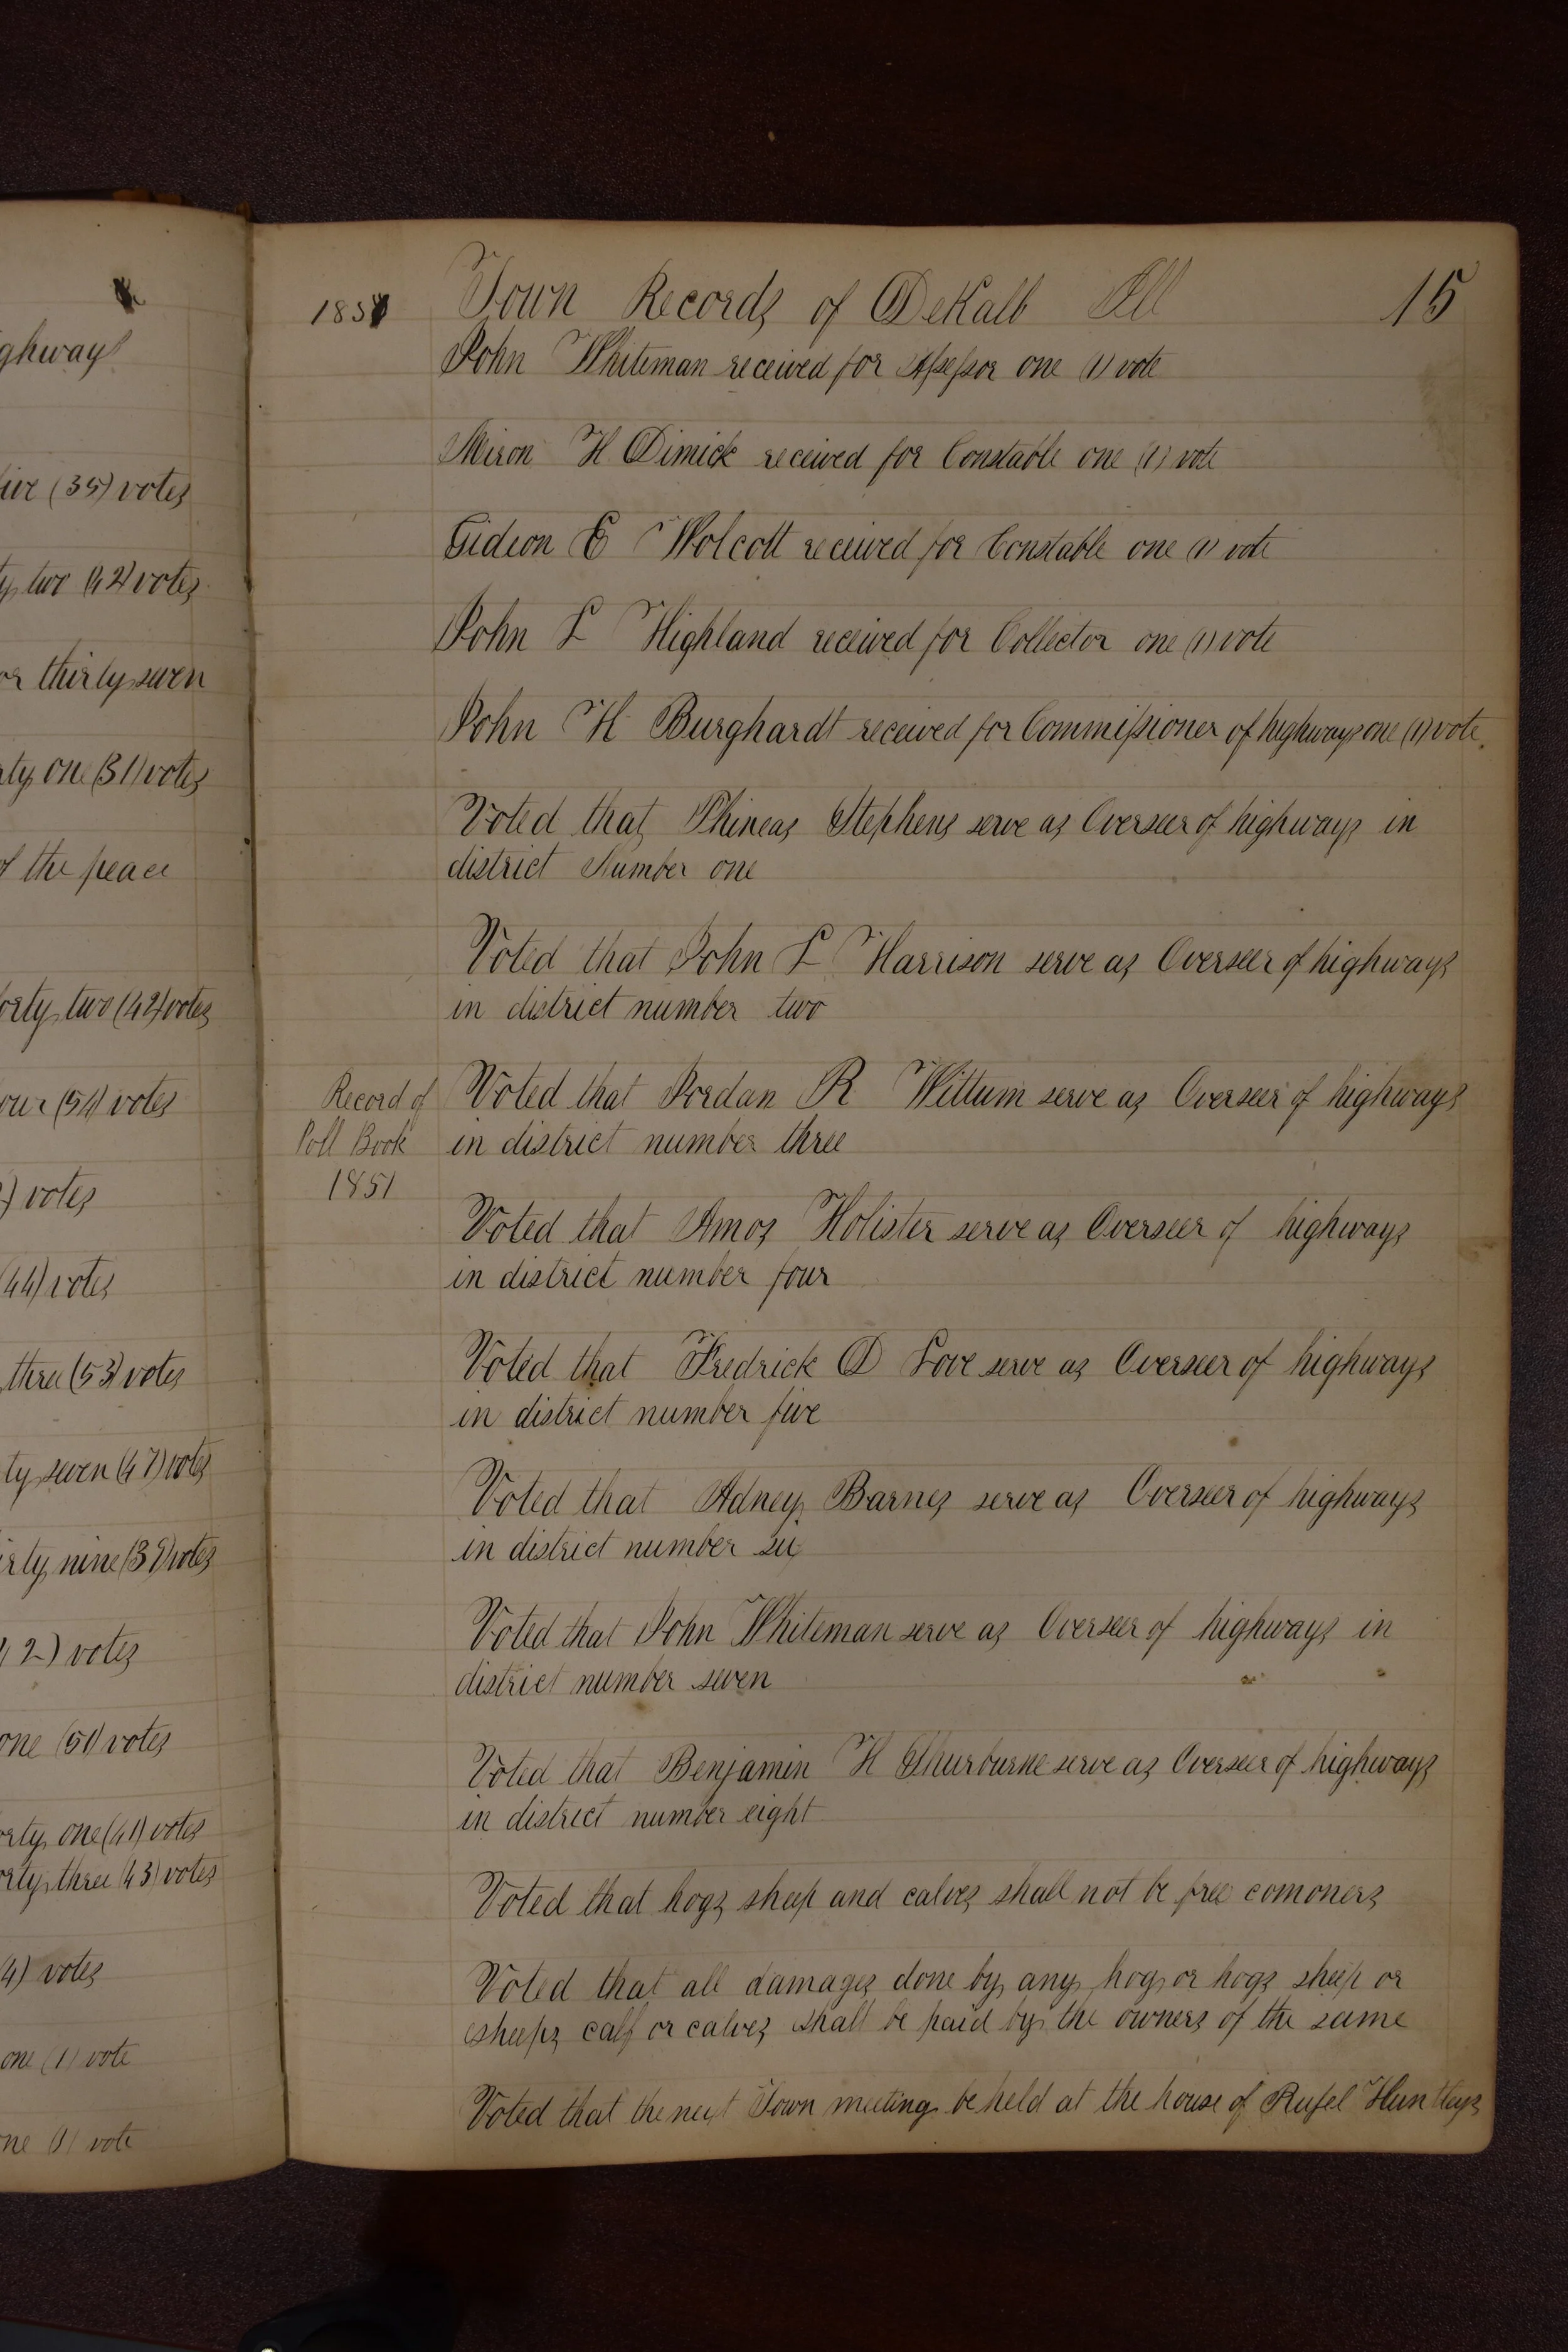 ghway
ive (35) votes
ty two (42) votes
or thirty seven
rty one (31) votes
of the peace
orty two (42) votes
our (54) votes
) votes
(44) votes
three (53) votes
ty seven (47) votes
irty nine (39) votes
42) votes
one (51) votes
orty one (41) votes
orty three (43) votes
4) votes
one (1) vote
one (1) vote
1851 Town Records of DeKalb Ill 15
John Whiteman received for Assessor one (1) vote
Miron H Dimick received for Constable one (1) vote
Gideon E Wolcott received for Constable one (1) vote
John L Highland received for Collector one (1) vote
John H Burghardt received for Commissioner of highways one (1) vote.
Voted that Phineas Stephens serve as Overseer of highways in
district Number one
Voted that John L Harrison serve as Overseer of highways
in district number two
Record of
Poll Book
1851
Voted that Jordan R Wittum serve as Overseer of highways
in district number three
Voted that Amos Holister serve as Overseer of highways
in district number four
Voted that Fredrick D Love serve as Overseer of highways
in district number five
Voted that Adney Barnes serve as Overseer of highways
in district number six
Voted that John Whiteman serve as Overseer of highways in
district number seven
Voted that Benjamin H Thurburne serve as Overseer of highways
in district number eight
Voted that hogs sheep and calves shall not be free comoners
Voted that all damages done by any hog or hogs sheep or
sheeps calf or calves shall be paid by the owners of the same
Voted that the next Town meeting be held at the house of Rufel Huntleys